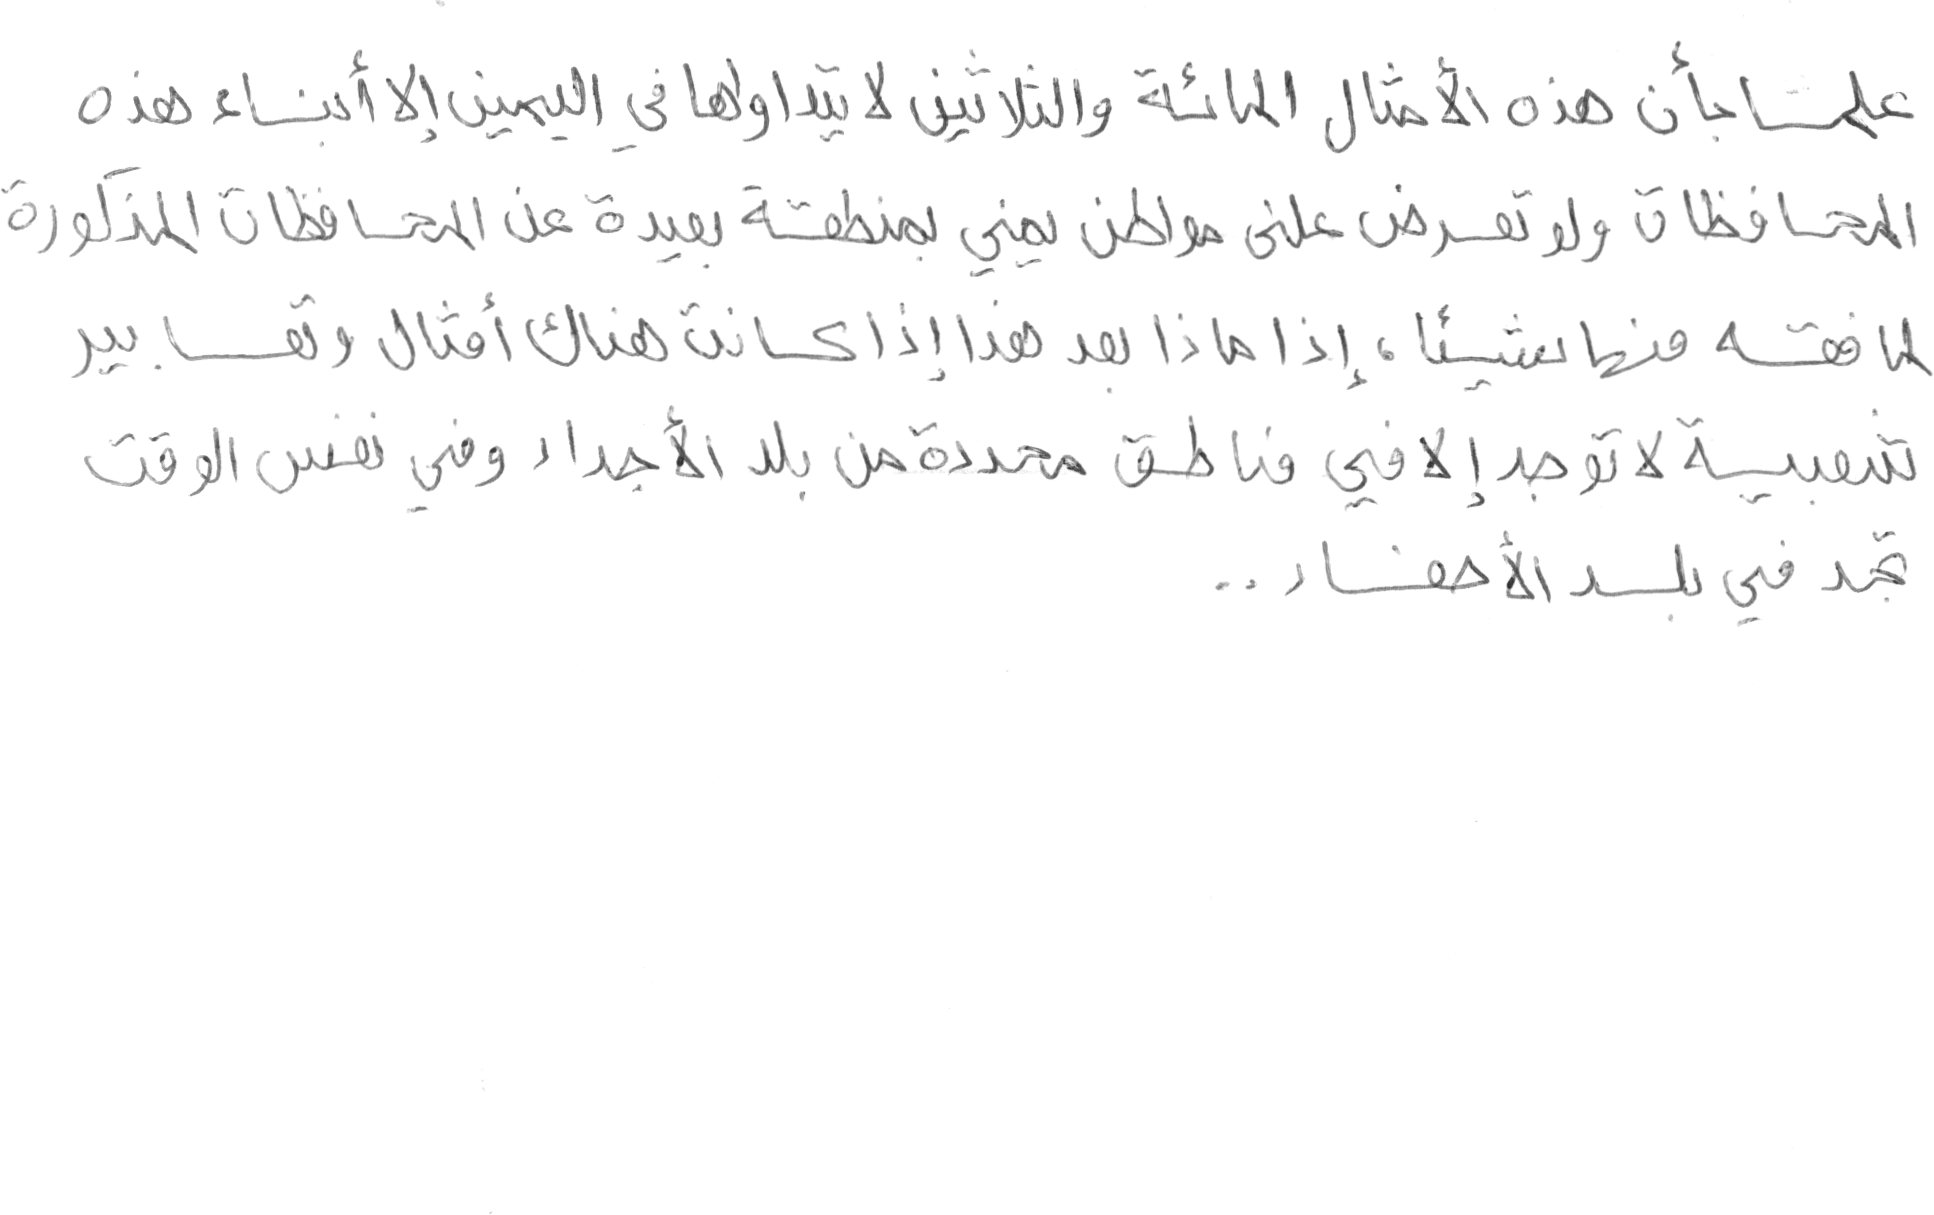 علمـًا بأن هذه الأمثال المائة والثلاثين لا يتداولها في اليمين إلا أبناء هذه
المحافظات ولو تعرض على مواطن يمني بمنطقة بعيدة عن المحافظات المذكورة
لما فقه منها شيئًا، إذا ماذا بعد هذا إذا كانت هناك أمثال وتعابير
شعبية لا توجد إلا في مناطق محددة من بلد الأجداد وفي نفس الوقت
تجد في بلد الأحفاد..